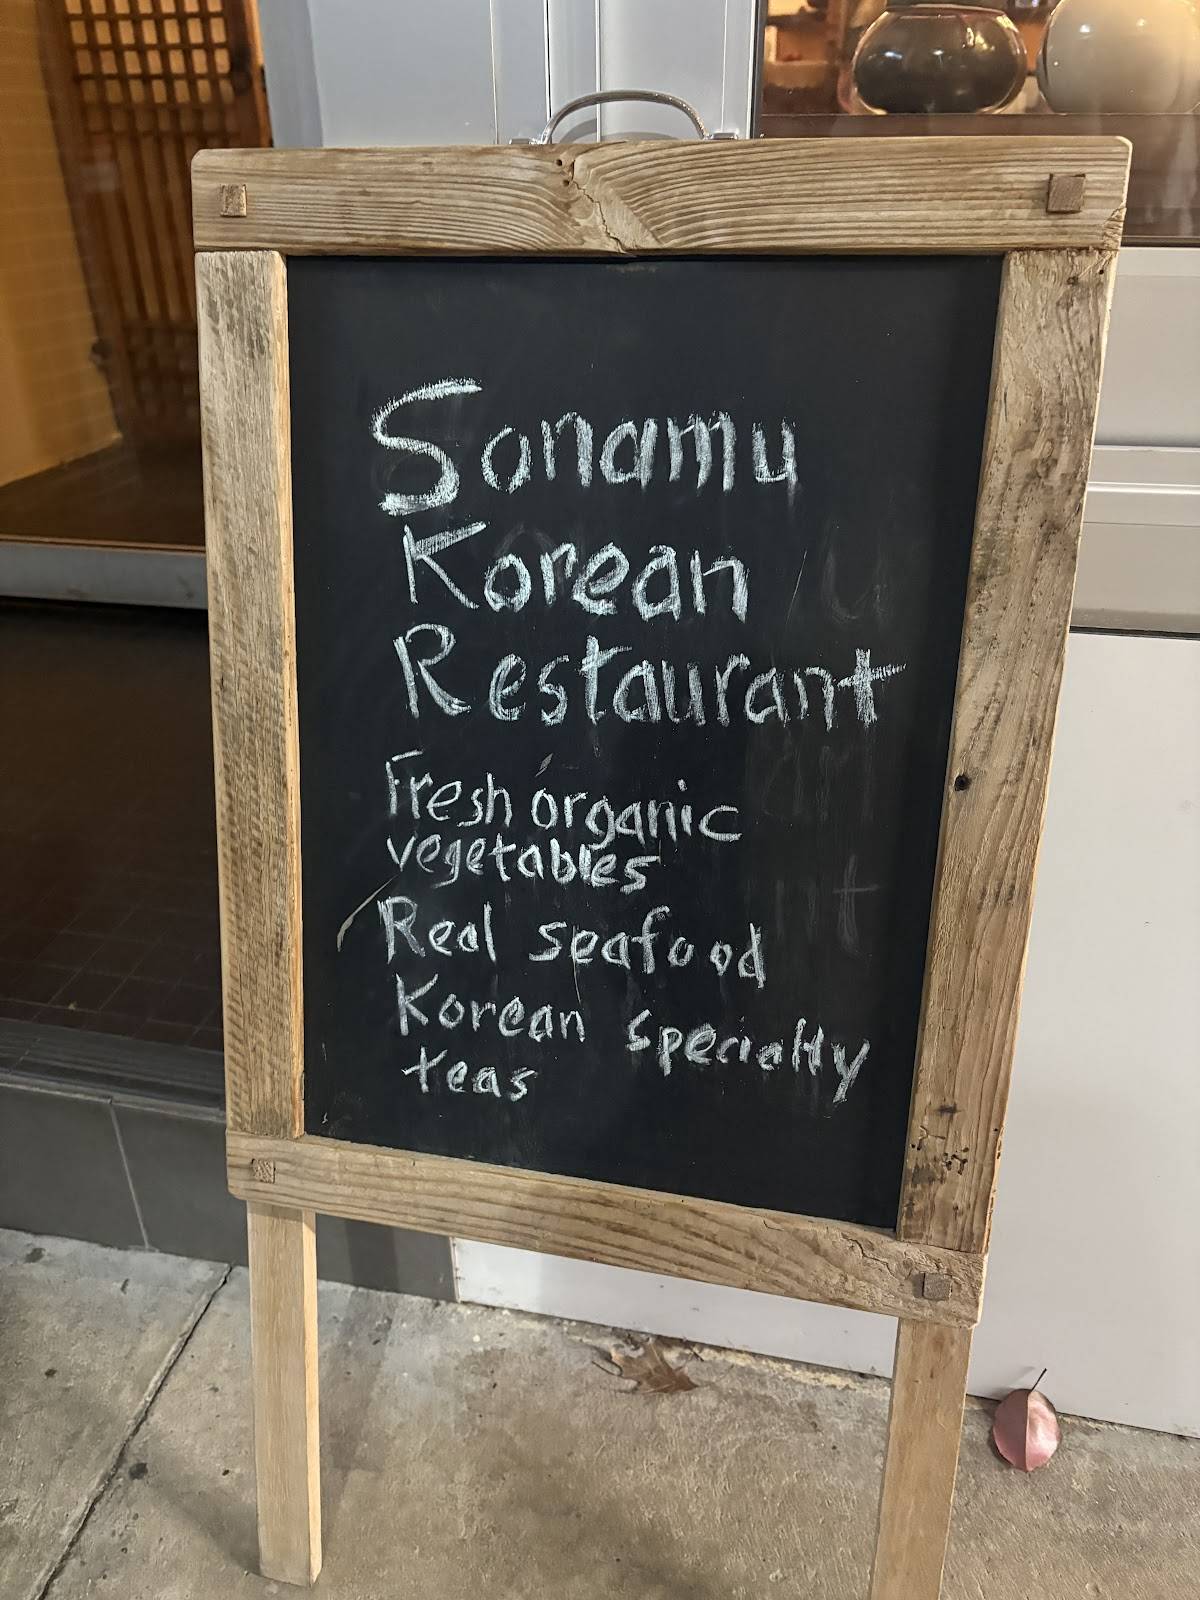 Sonamu
Korean
Restaurant
Fresh organic
vegetables
Real seafood
Korean specialty
teas